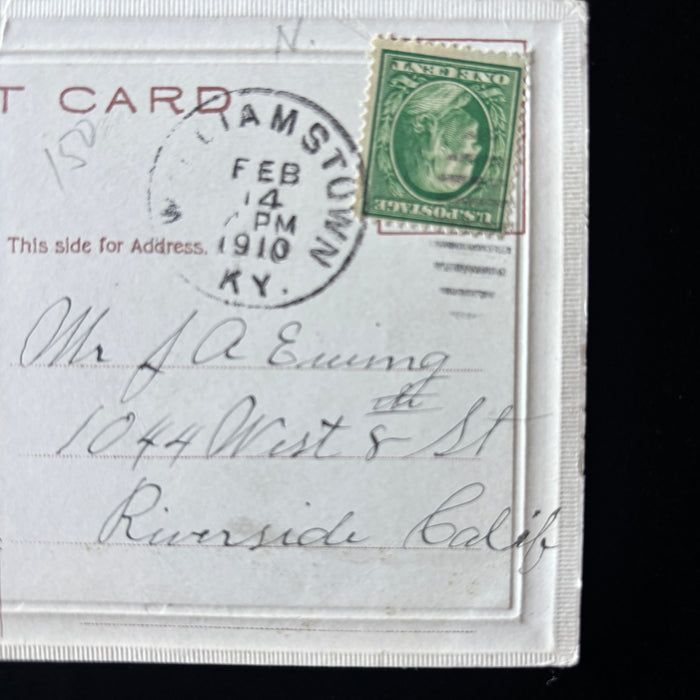 N.
T CARD
150
IAMSTOWN
FEB
14
PM
1910
KY.
ONE CENT
U.S. POSTAGE
This side for Address.
Mr J A Ewing
1044 West 8th St
Riverside Calif